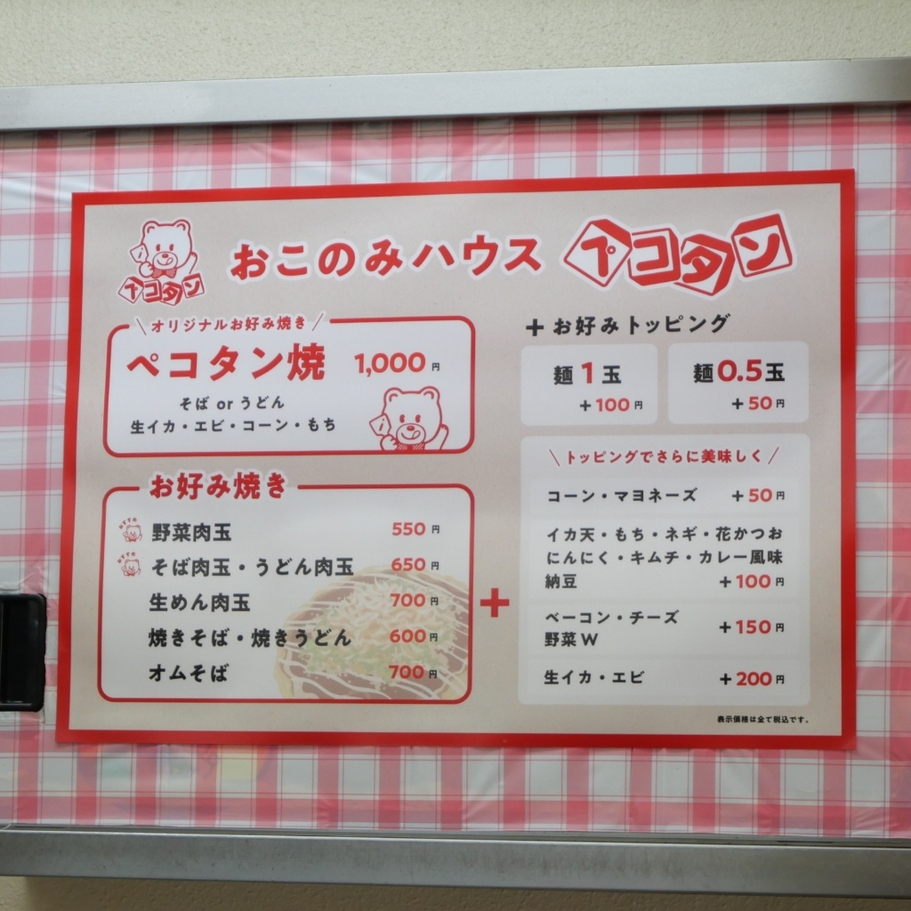 ペコタン
おこのみハウス ペコタン
オリジナルお好み焼き
ペコタン焼 1,000円
そば or うどん
生イカ・エビ・コーン・もち
お好み焼き
野菜肉玉 550円
そば肉玉・うどん肉玉 650円
生めん肉玉 700円
焼きそば・焼きうどん 600円
オムそば 700円
+
+お好みトッピング
麺1玉
+100円
麺0.5玉
+50円
トッピングでさらに美味しく
コーン・マヨネーズ +50円
イカ天・もち・ネギ・花かつお
にんにく・キムチ・カレー風味
納豆 +100円
ベーコン・チーズ
野菜W +150円
生イカ・エビ +200円
表示価格は全て税込です。